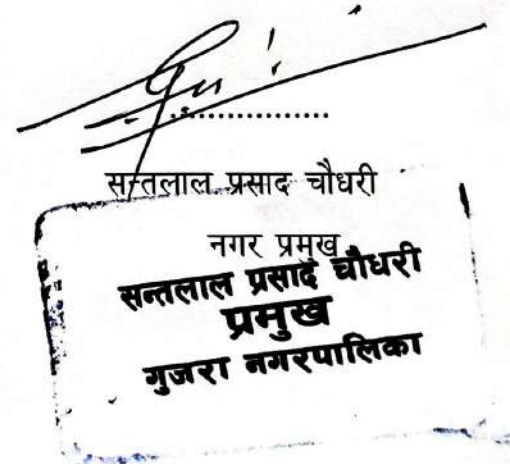 ..................
सन्तलाल प्रसाद चौधरी
नगर प्रमुख
सन्तलाल प्रसाद चौधरी
प्रमुख
गुजरा नगरपालिका